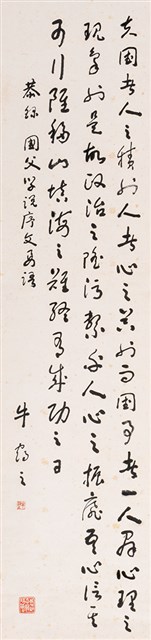 夫國者人之積也人者心之器也而國事者一人群心理之
現象也是故政治之隆污繫乎人心之振靡吾心信其
可行雖移山填海之難終有成功之日
恭錄 國父學說序文 語
牛 之